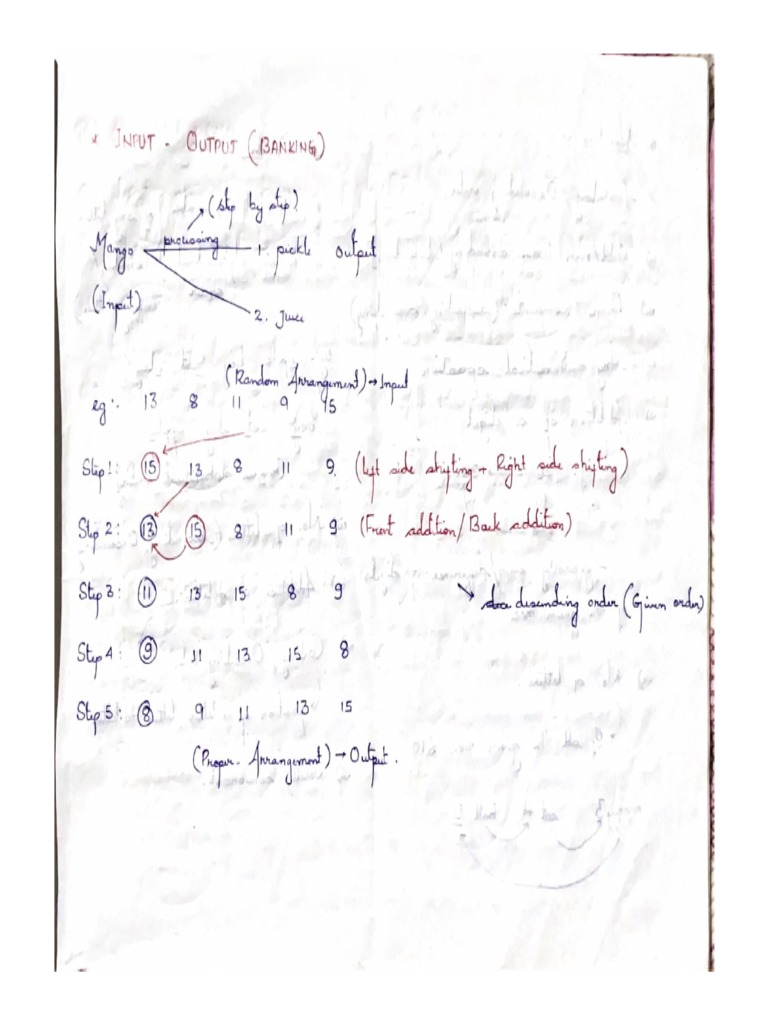 * INPUT - OUTPUT (BANKING)
(step by step)
Mango processing 1. pickle output
(Input)
2. Juice
(Random Arrangement) → Input
eg:- 13 8 11 9 15
Step 1: 15 13 8 11 9 (left side shifting + Right side shifting)
Step 2: 13 15 8 11 9 (Front addition/Back addition)
Step 3: 11 13 15 8 9
descending order (Given order)
Step 4: 9 11 13 15 8
Step 5: 8 9 11 13 15
(Proper. Arrangement) → Output.